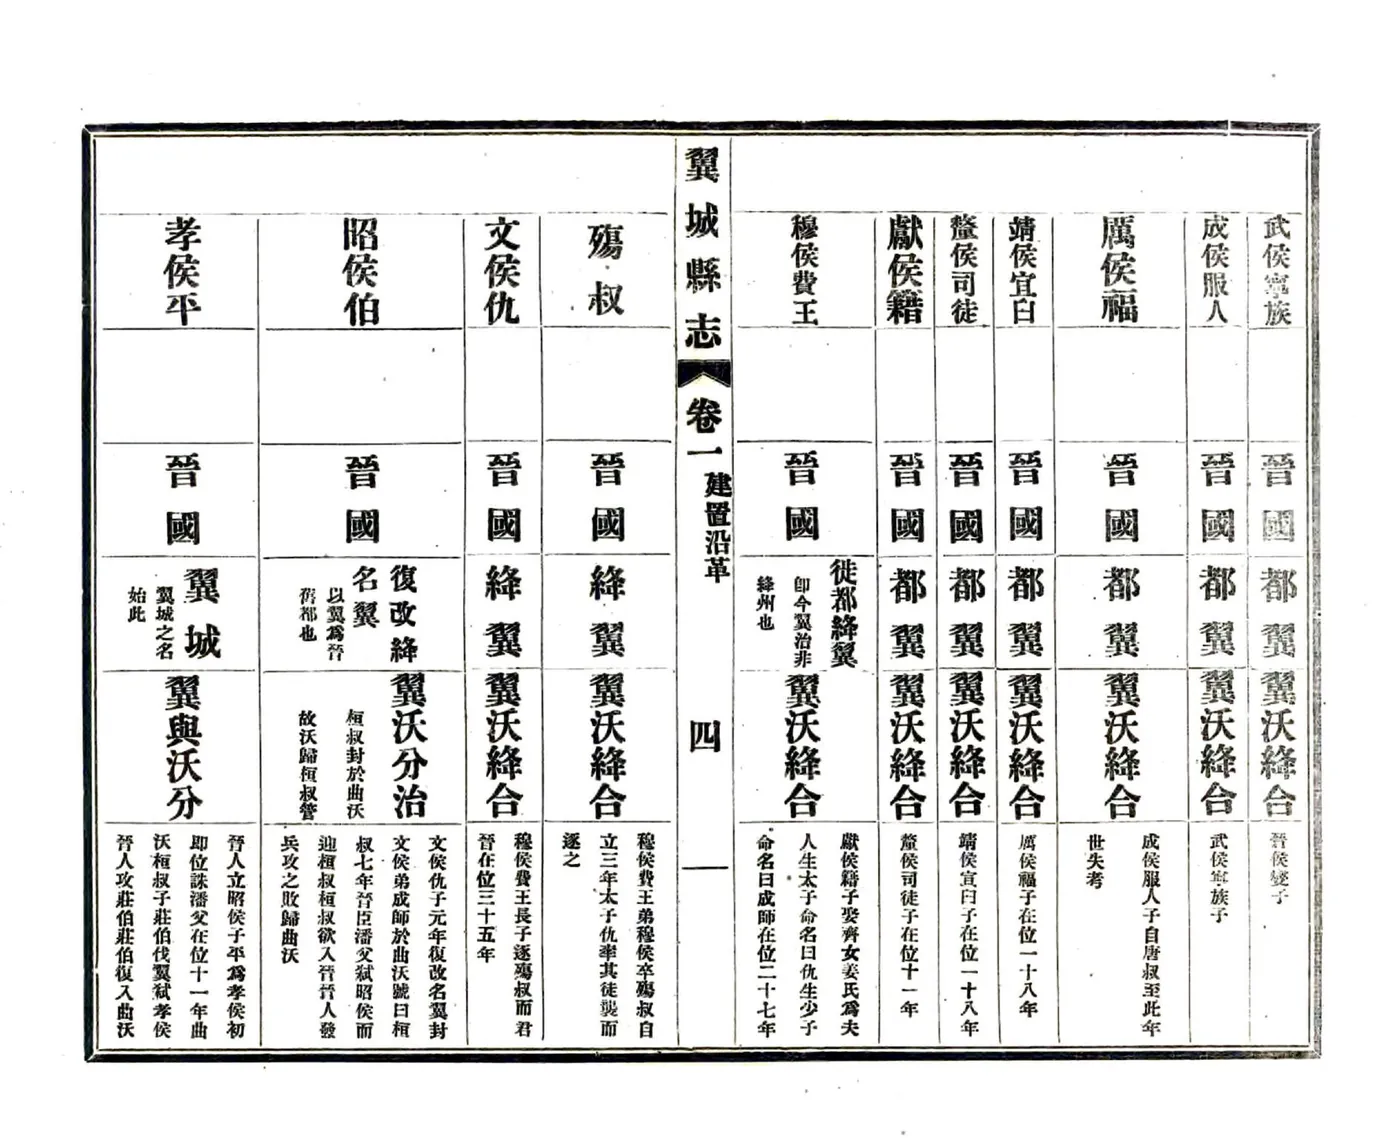 武侯寧族
晉國
都翼
翼沃絳合
晉侯燮子
成侯服人
晉國
都翼
翼沃絳合
武侯寧族子
厲侯福
晉國
都翼
翼沃絳合
成侯服人子自唐叔至此年
世失考
靖侯宜臼
晉國
都翼
翼沃絳合
厲侯福子在位一十八年
釐侯司徒
晉國
都翼
翼沃絳合
靖侯宜臼子在位一十八年
獻侯籍
晉國
都翼
翼沃絳合
釐侯司徒子在位十一年
穆侯費王
晉國
徙都絳翼
卽今翼治非
絳州也
翼沃絳合
獻侯籍子娶齊女姜氏爲夫
人生太子命名曰仇生少子
命名曰成師在位二十七年
翼城縣志
卷一
建置沿革
四
殤叔
晉國
絳翼
翼沃絳合
穆侯費王弟穆侯卒殤叔自
立三年太子仇率其徒襲而
逐之
文侯仇
晉國
絳翼
翼沃絳合
穆侯費王長子逐殤叔而君
晉在位三十五年
昭侯伯
晉國
復改絳
名翼
以翼爲晉
舊都也
翼沃分治
桓叔封於曲沃
故沃歸桓叔管
文侯仇子元年復改名翼封
文侯弟成師於曲沃號曰桓
叔七年晉臣潘父弑昭侯而
迎桓叔桓叔欲入晉晉人發
兵攻之敗歸曲沃
孝侯平
晉國
翼城
翼城之名
始此
翼與沃分
晉人立昭侯子平爲孝侯初
即位誅潘父在位十一年曲
沃桓叔子莊伯伐翼弑孝侯
晉人攻莊伯莊伯復入曲沃